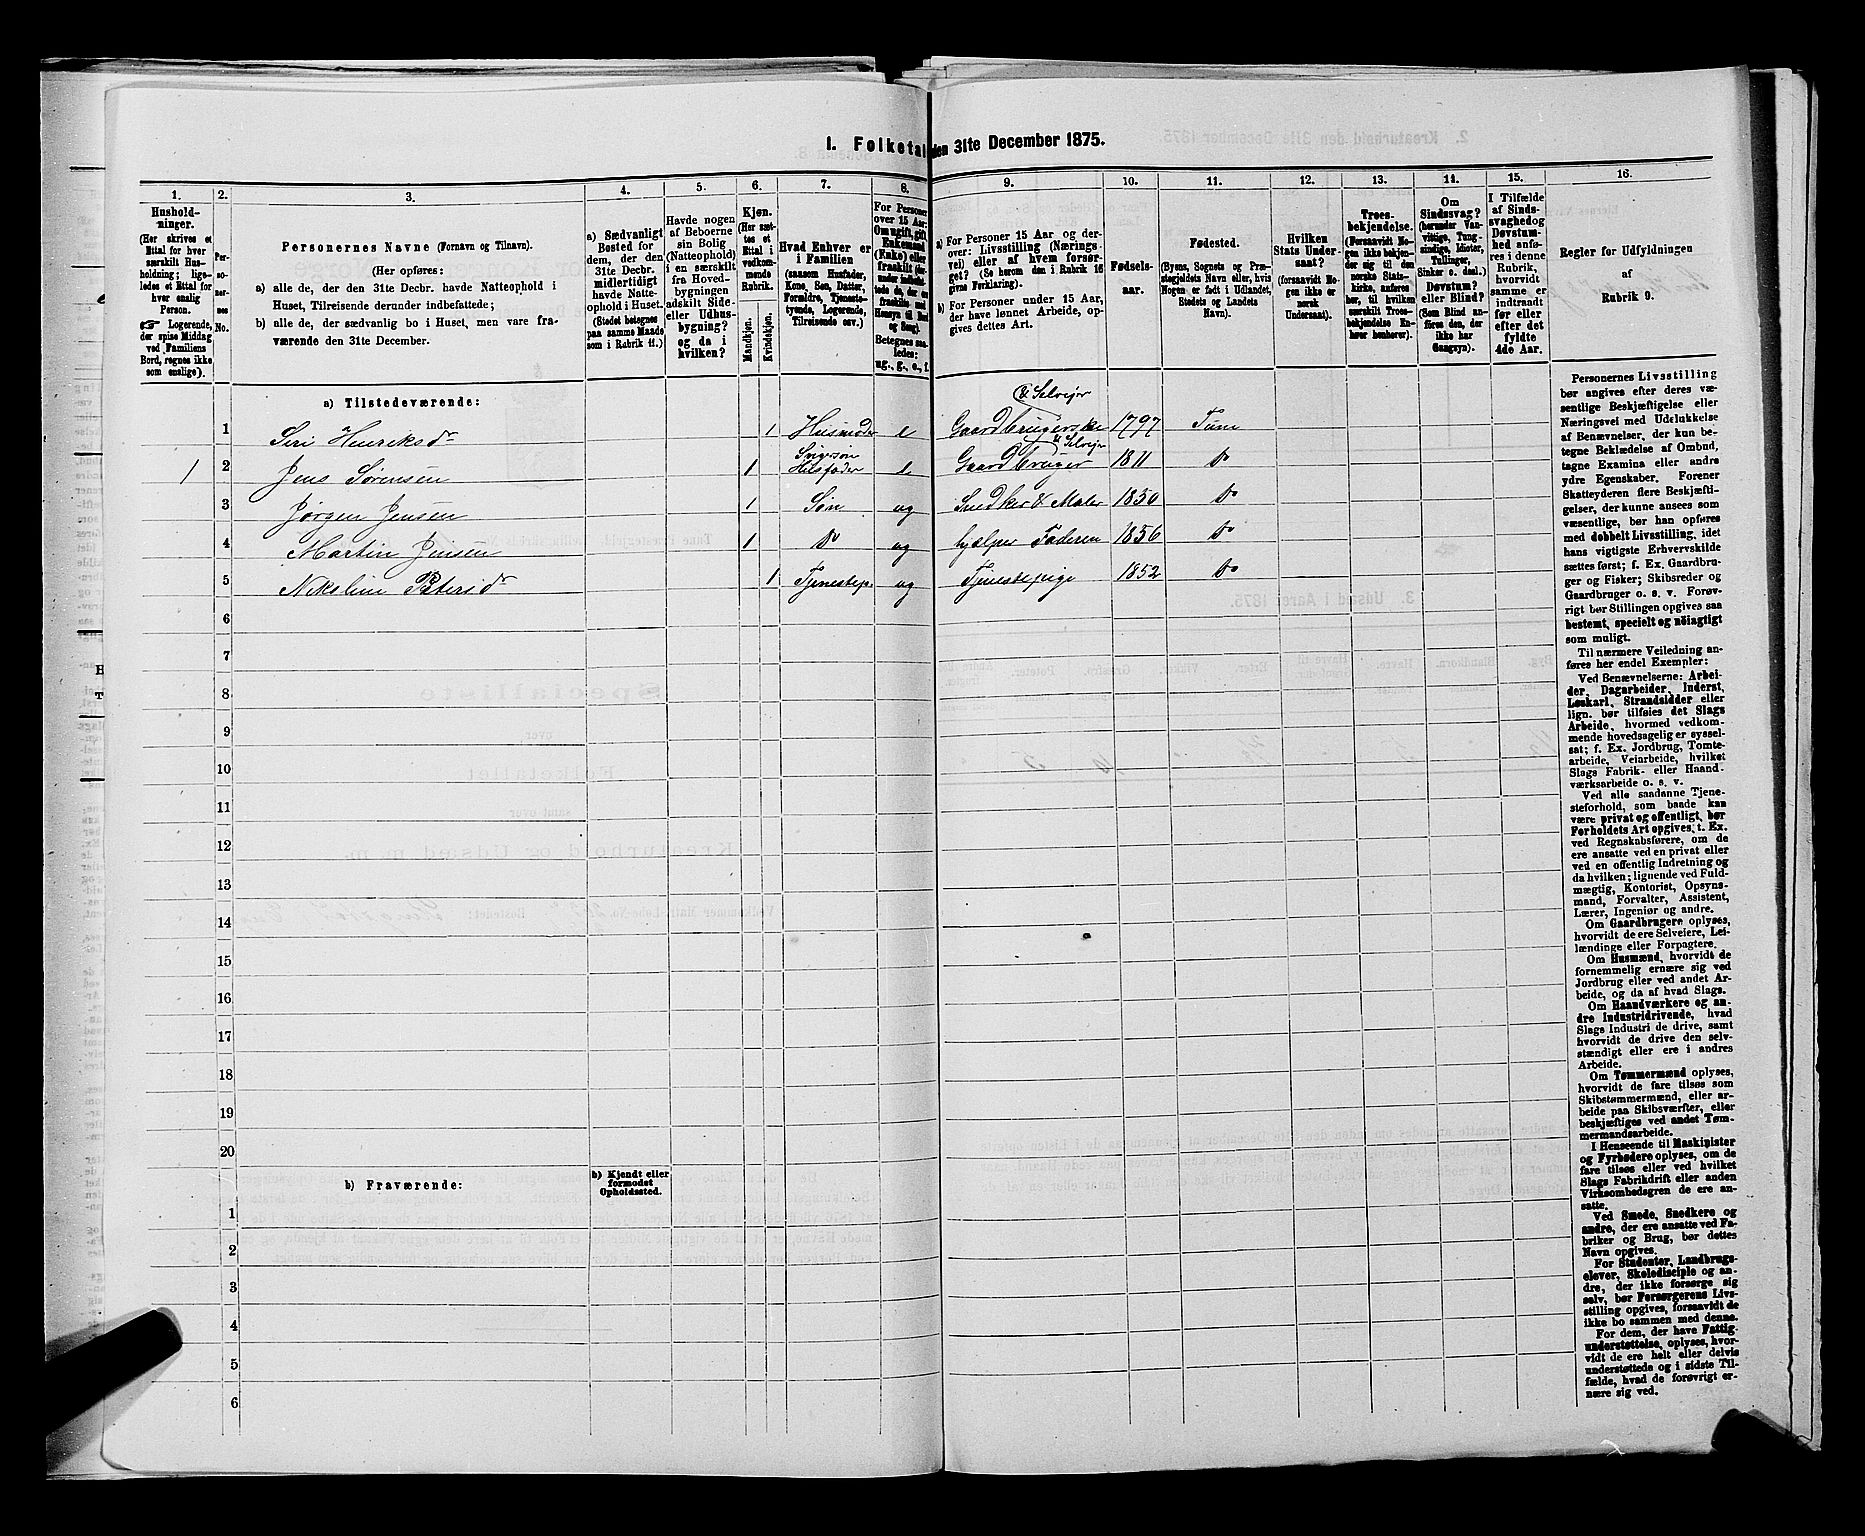 I. Folketal den 31te December 1875.
1. 2. 3. 4. 5. 6. 7. 8. 9. 10. 11. 12. 13. 14. 15. 16.
Hushold-
ninger.
(Her skrives et
Ettal for hver
særskilt Hus-
holdning; lige-
ledes et Ettal for
hver enslig
Person.
☞ Logerende,
der spise Middag
ved Familiens
Bord, regnes ikke
som enslige).
Per-
so-
ner-
nes
No.
Personernes Navne (Fornavn og Tilnavn).
(Her opføres:
a) alle de, der den 31te Decbr. havde Natteophold i
Huset, Tilreisende derunder indbefattede;
b) alle de, der sædvanlig bo i Huset, men vare fra-
værende den 31te December.
a) Sædvanligt
Bosted for
dem, der den
31te Decbr.
midlertidigt
havde Natte-
ophold i Huset
(Stedet betegnes
paa samme Maade
som i Rubrik 11.)
Havde nogen
af Beboerne
sin Bolig
(Natteophold)
i en særskilt
fra Hoved-
bygningen
adskilt Side-
eller Udhus-
bygning?
og da i
hvilken?
Kjøn.
(Her sæt-
tes et
Ettal i
vedkom-
mende
Rubrik.
Mandkjøn.
Kvindekjøn.
Hvad Enhver er
i Familien
(saasom Husfader,
Kone, Søn, Datter,
Forældre, Tjeneste-
tyende, Logerende,
Tilreisende osv.)
For Personer
over 15 Aar:
Om ugift, gift,
Enkemand
(Enke) eller
fraskilt
Betegnes saa-
ledes:
ug., g., e., f.
a) For Personer 15 Aar og der-
over: Livsstilling (Nærings-
vei) eller af hvem forsør-
get? (Se herom den i Rubrik 16
givne Forklaring).
b) For Personer under 15 Aar,
der have lønnet Arbeide, op-
gives dettes Art.
Fødsels-
aar.
Fødested.
(Byens, Sognets og Præ-
stegjeldets Navn eller, hvis
Nogen er født i Udlandet,
Stedets og Landets
Navn).
Hvilken
Stats Under-
saat?
(forsaavidt No-
gen ikke er
norsk
Undersaat).
Troes-
bekjendelse.
(Forsaavidt No-
gen ikke bekjen-
der sig til den
norske Stats-
kirke, anføres
her, til hvilken
særskilt Troes-
bekjendelse En-
hver henhører).
Om
Sindssvag?
(herunder Van-
vittige, Tung-
sindige, Idioter,
Tullinger,
Sinker o. desl.)
Døvstum?
eller Blind?
(Som Blind an-
føres den, der
ikke har
Gangsyn).
I Tilfælde
af Sinds-
svaghed og
Døvstum-
hed anfø-
res i denne
Rubrik,
hvorvidt
samme er
indtraadt
før eller
efter det
fyldte
4de Aar.
Regler for Udfyldningen
af
Rubrik 9.
a) Tilstedeværende:
& Selvejer
1 Siri Henriksdr 1 Husmoder e Gaardbrugerske 1797 Tune
Svigersøn & Selvejer
1 2 Jens Sørensen 1 Husfader e Gaardbruger 1811 Do
3 Jørgen Jensen 1 Søn ug Snedker & Maler 1850 Do
4 Martin Jensen 1 Do ug hjælper Faderen 1856 Do
5 Nikoline Petersd 1 Tjenestep. ug Tjenestepige 1852 Do
6
7
8
9
10
11
12
13
14
15
16
17
18
19
20
b) Fraværende:
b) Kjendt eller
formodet
Opholdssted.
1
2
3
4
5
6
Personernes Livsstilling
bør angives efter deres væ-
sentlige Beskjæftigelse eller
Næringsvei med Udelukkelse
af Benævnelser, der kun be-
tegne Beklædelse af Ombud,
tagne Examina eller andre
ydre Egenskaber. Forener
Skatteyderen flere Beskjæfti-
gelser, der kunne ansees som
væsentlige, bør han opføres
med dobbelt Livsstilling, idet
hans vigtigste Erhvervskilde
sættes først; f. Ex. Gaardbru-
ger og Fisker; Skibsreder og
Gaardbruger o. s. v. Forøv-
rigt bør Stillingen opgives saa
bestemt, specielt og nøiagtigt
som muligt.
Til nærmere Veiledning an-
føres her endel Exempler:
Ved Benævnelserne: Arbei-
der, Dagarbeider, Inderst,
Løskarl, Strandsidder eller
lign. bør tilføies det Slags
Arbeide, hvormed vedkom-
mende hovedsagelig er syssel-
sat; f. Ex. Jordbrug, Tomte-
arbeide, Veiarbeide, hvilket
Slags Fabrik- eller Haand-
værksarbeide o. s. v.
Ved alle saadanne Tjene-
steforhold, som baade kan
være privat og offentligt, bør
Forholdets Art opgives, t. Ex.
ved Regnskabsførere, om de
ere ansatte ved en privat eller
ved en offentlig Indretning og
da hvilken; lignende ved Fuld-
mægtig, Kontorist, Opsyns-
mand, Forvalter, Assistent,
Lærer, Ingeniør og andre.
Om Gaardbrugere oplyses,
hvorvidt de ere Selveiere, Lei-
lændinge eller Forpagtere.
Om Husmænd, hvorvidt de
fornemmelig ernære sig ved
Jordbrug eller ved andet Ar-
beide, og da af hvad Slags.
Om Haandværkere og an-
dre Industridrivende, hvad
Slags Industri de drive, samt
hvorvidt de drive den selv-
stændigt eller ere i andres
Arbeide.
Om Tømmermænd oplyses,
hvorvidt de fare tilsøs som
Skibstømmermænd, eller ar-
beide paa Skibsværfter, eller
beskjæftiges ved andet Tøm-
mermandsarbeide.
I Henseende til Maskinister
og Fyrbødere oplyses, om de
fare tilsøs eller ved hvilket
Slags Fabrikdrift eller anden
Virksomhedsgren de ere an-
satte.
Ved Smede, Snedkere og
andre, der ere ansatte ved Fa-
briker og Brug, bør dettes
Navn opgives.
For Studenter, Landbrugs-
elever, Skoledisciple og an-
dre, der ikke forsørge sig
selv, bør Forsørgerens Livs-
stilling opgives, forsaavidt de
ikke bo sammen med denne.
For dem, der have Fattig-
understøttelse, oplyses, hvor-
vidt de ere helt eller delvis
understøttede og i sidste Til-
fælde, hvad de forøvrigt er-
nære sig ved.